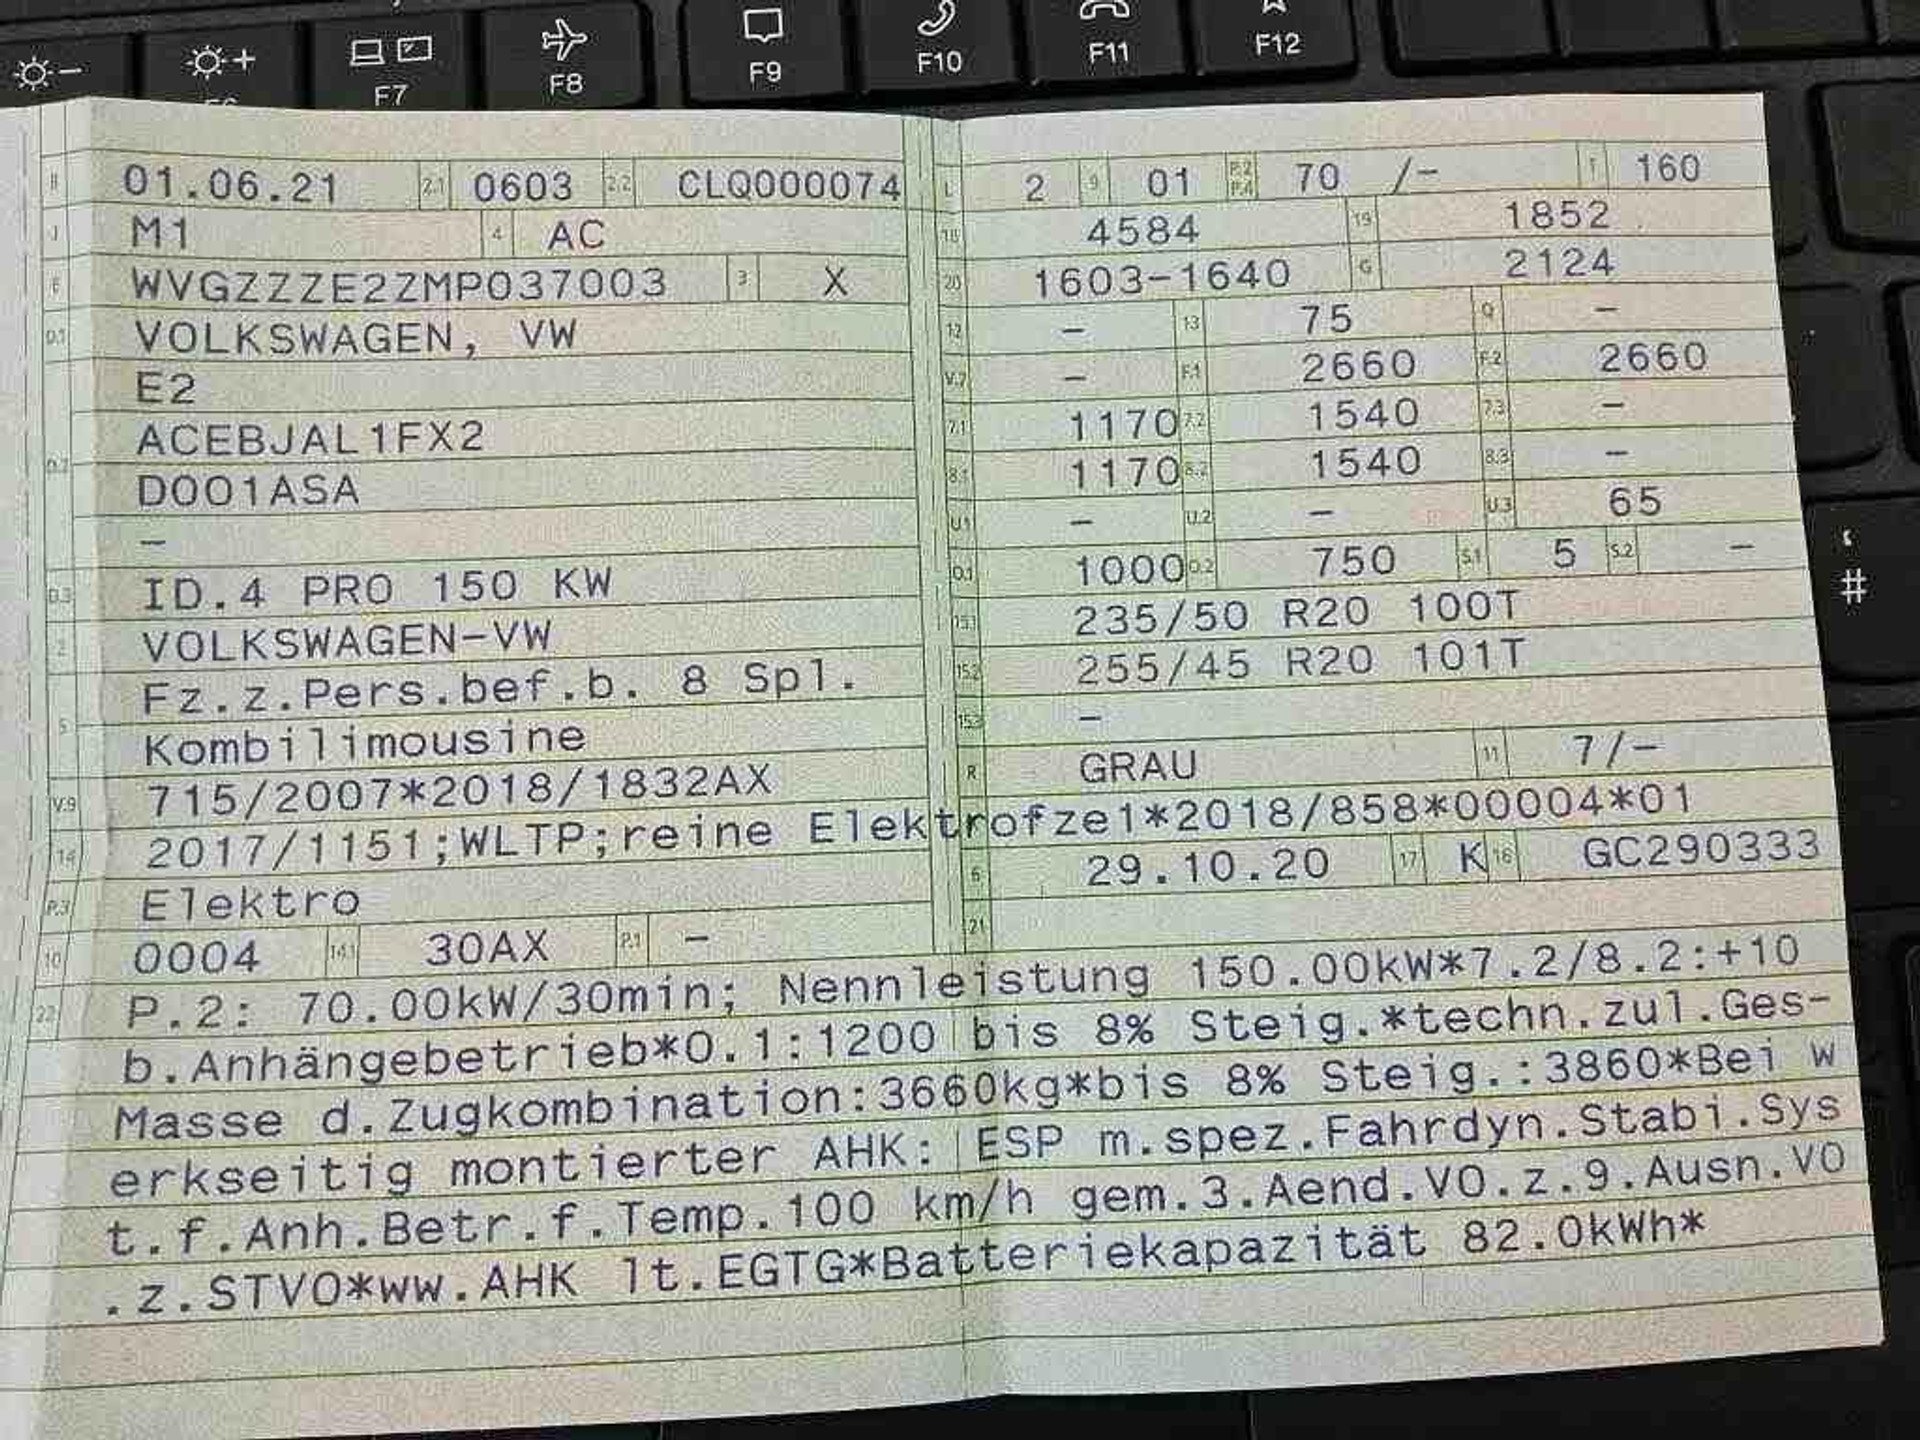 F7
F8
F9
F10
F11
F12
#
B 01.06.21 2.1 0603 2.2 CLQ000074
J M1 4 AC
E WVGZZZE2ZMP037003 3 X
D.1 VOLKSWAGEN, VW
E2
D.2 ACEBJAL1FX2
D001ASA
–
D.3 ID.4 PRO 150 KW
2 VOLKSWAGEN-VW
Fz.z.Pers.bef.b. 8 Spl.
5 Kombilimousine
V.9 715/2007*2018/1832AX
14 2017/1151;WLTP;reine Elektrofze1*2018/858*00004*01
P.3 Elektro
10 0004 14.1 30AX P.1 –
L 2 9 01 P.2 P.4 70 /– T 160
18 4584 19 1852
20 1603-1640 G 2124
12 – 13 75 Q –
V.7 – F.1 2660 F.2 2660
7.1 1170 7.2 1540 7.3 –
8.1 1170 8.2 1540 8.3 –
U.1 – U.2 – U.3 65
O.1 1000 O.2 750 S.1 5 S.2 –
15.1 235/50 R20 100T
15.2 255/45 R20 101T
15.3 –
R GRAU 11 7/–
6 29.10.20 17 K 16 GC290333
21
22 P.2: 70.00kW/30min; Nennleistung 150.00kW*7.2/8.2:+10
b.Anhängebetrieb*O.1:1200 bis 8% Steig.*techn.zul.Ges-
Masse d.Zugkombination:3660kg*bis 8% Steig.:3860*Bei w
erkseitig montierter AHK: ESP m.spez.Fahrdyn.Stabi.Sys
t.f.Anh.Betr.f.Temp.100 km/h gem.3.Aend.VO.z.9.Ausn.VO
.z.STVO*ww.AHK lt.EGTG*Batteriekapazität 82.0kWh*